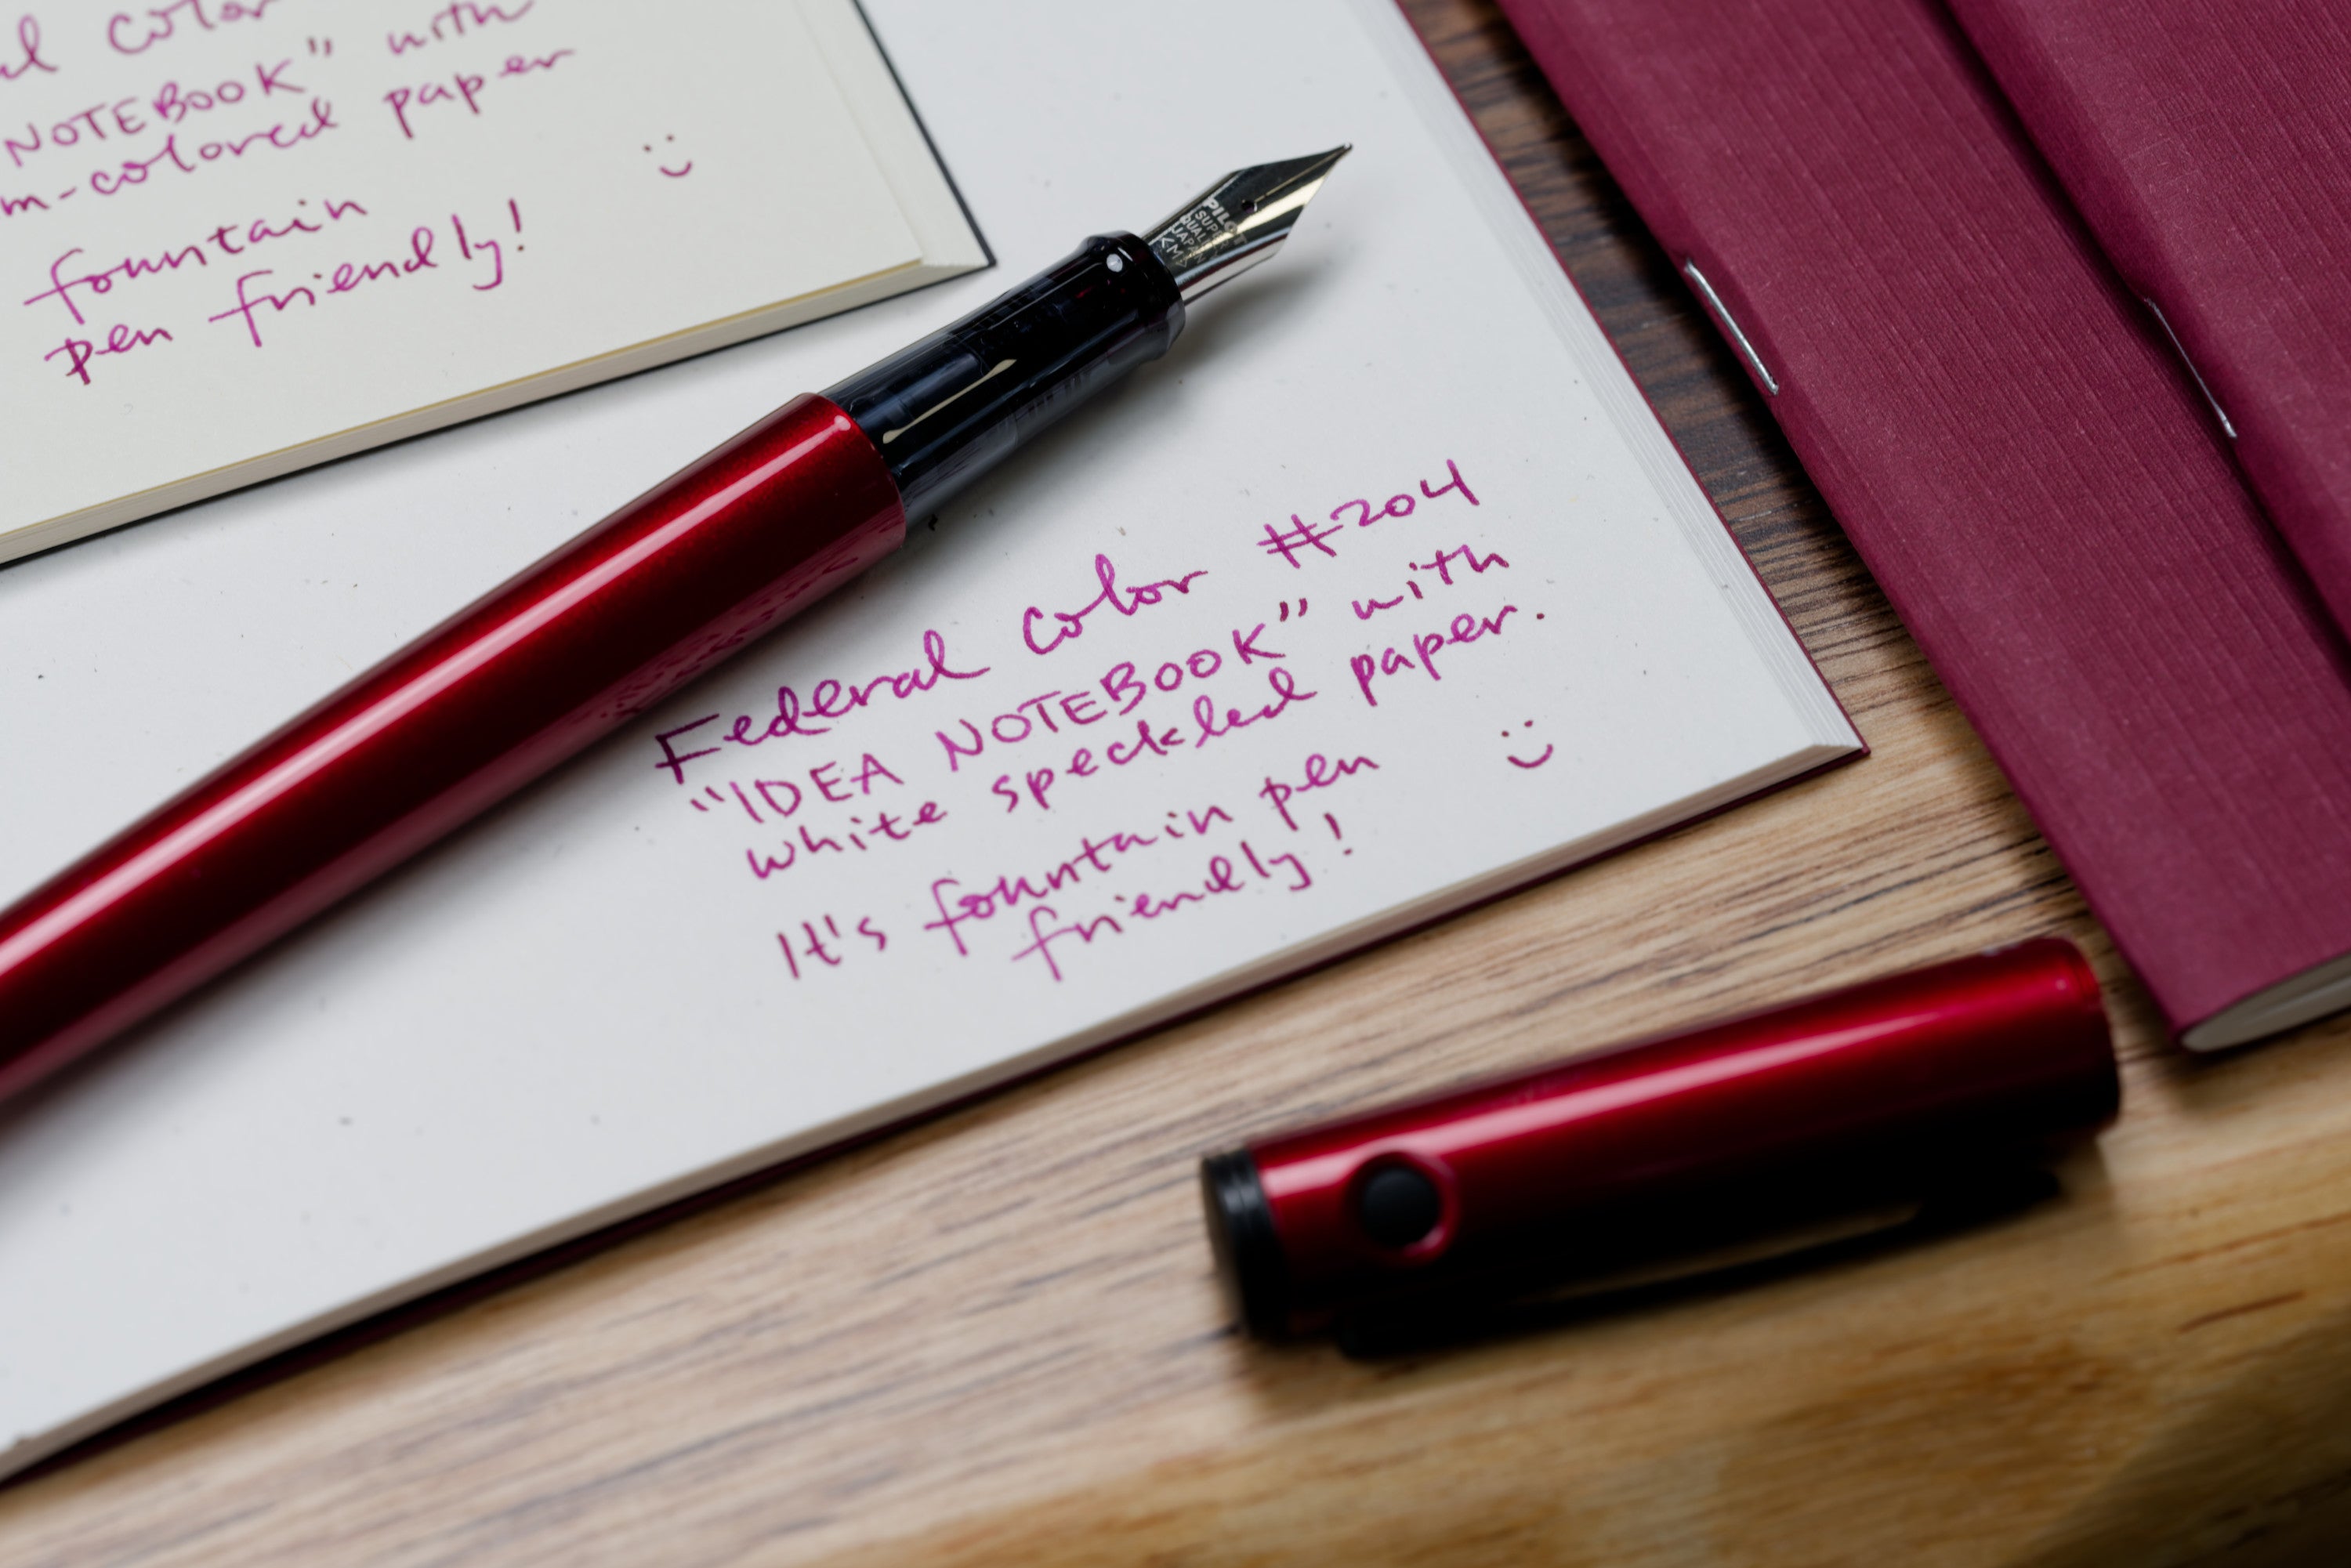 color
NOTEBOOK" with
m-colored paper
fountain
pen friendly!
PILOT
SUPER
QUALITY
JAPAN
<M>
Federal Color #204
"IDEA NOTEBOOK" with
white speckled paper.
It's fountain pen
friendly!